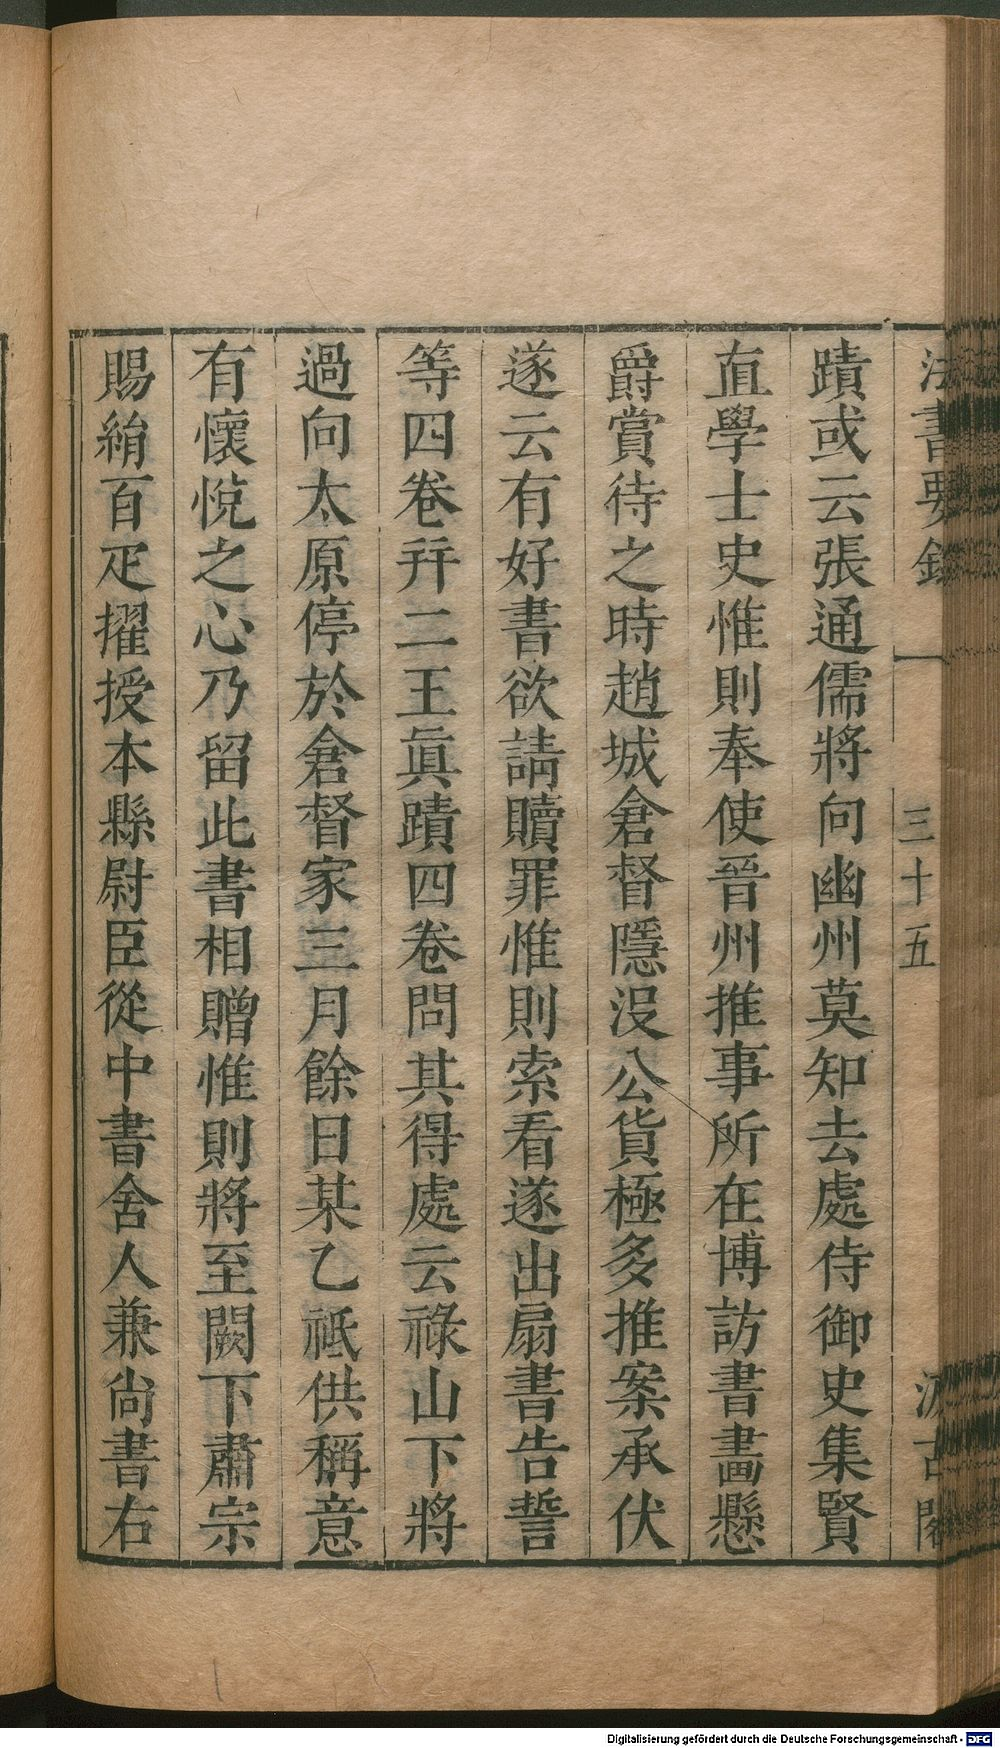 法書要錄
三十五
汲古閣
蹟或云張通儒將向幽州莫知去處侍御史集賢
直學士史惟則奉使晉州推事所在博訪書畫懸
爵賞待之時趙城倉督隱沒公貨極多推案承伏
遂云有好書欲請贖罪惟則索看遂出扇書告誓
等四卷幷二王眞蹟四卷問其得處云祿山下將
過向太原停於倉督家三月餘日某乙祗供稱意
有懷悅之心乃留此書相贈惟則將至闕下肅宗
賜絹百疋擢授本縣尉臣從中書舍人兼尙書右
Digitalisierung gefördert durch die Deutsche Forschungsgemeinschaft - DFG